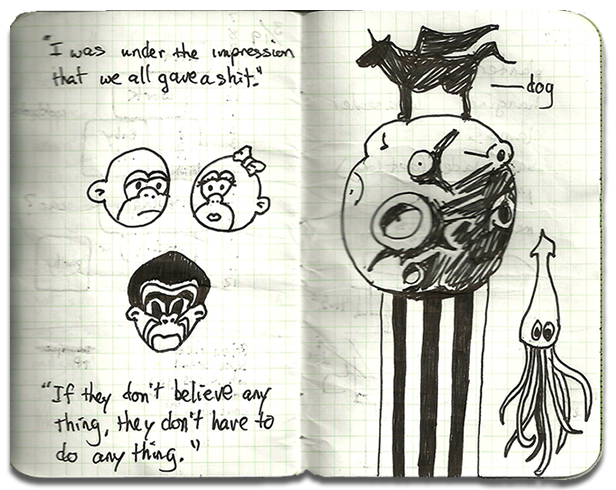 "I was under the impression
that we all gave a shit."
dog
"If they don't believe any
thing, they don't have to
do any thing."